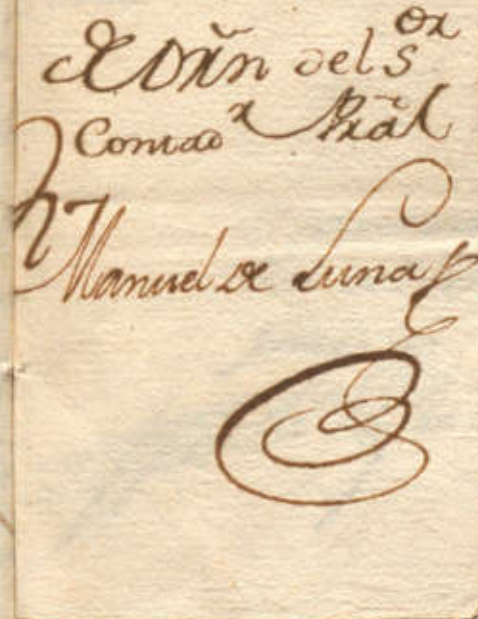 De Orñ del S.or
Contad.r Pral
Manuel de Luna